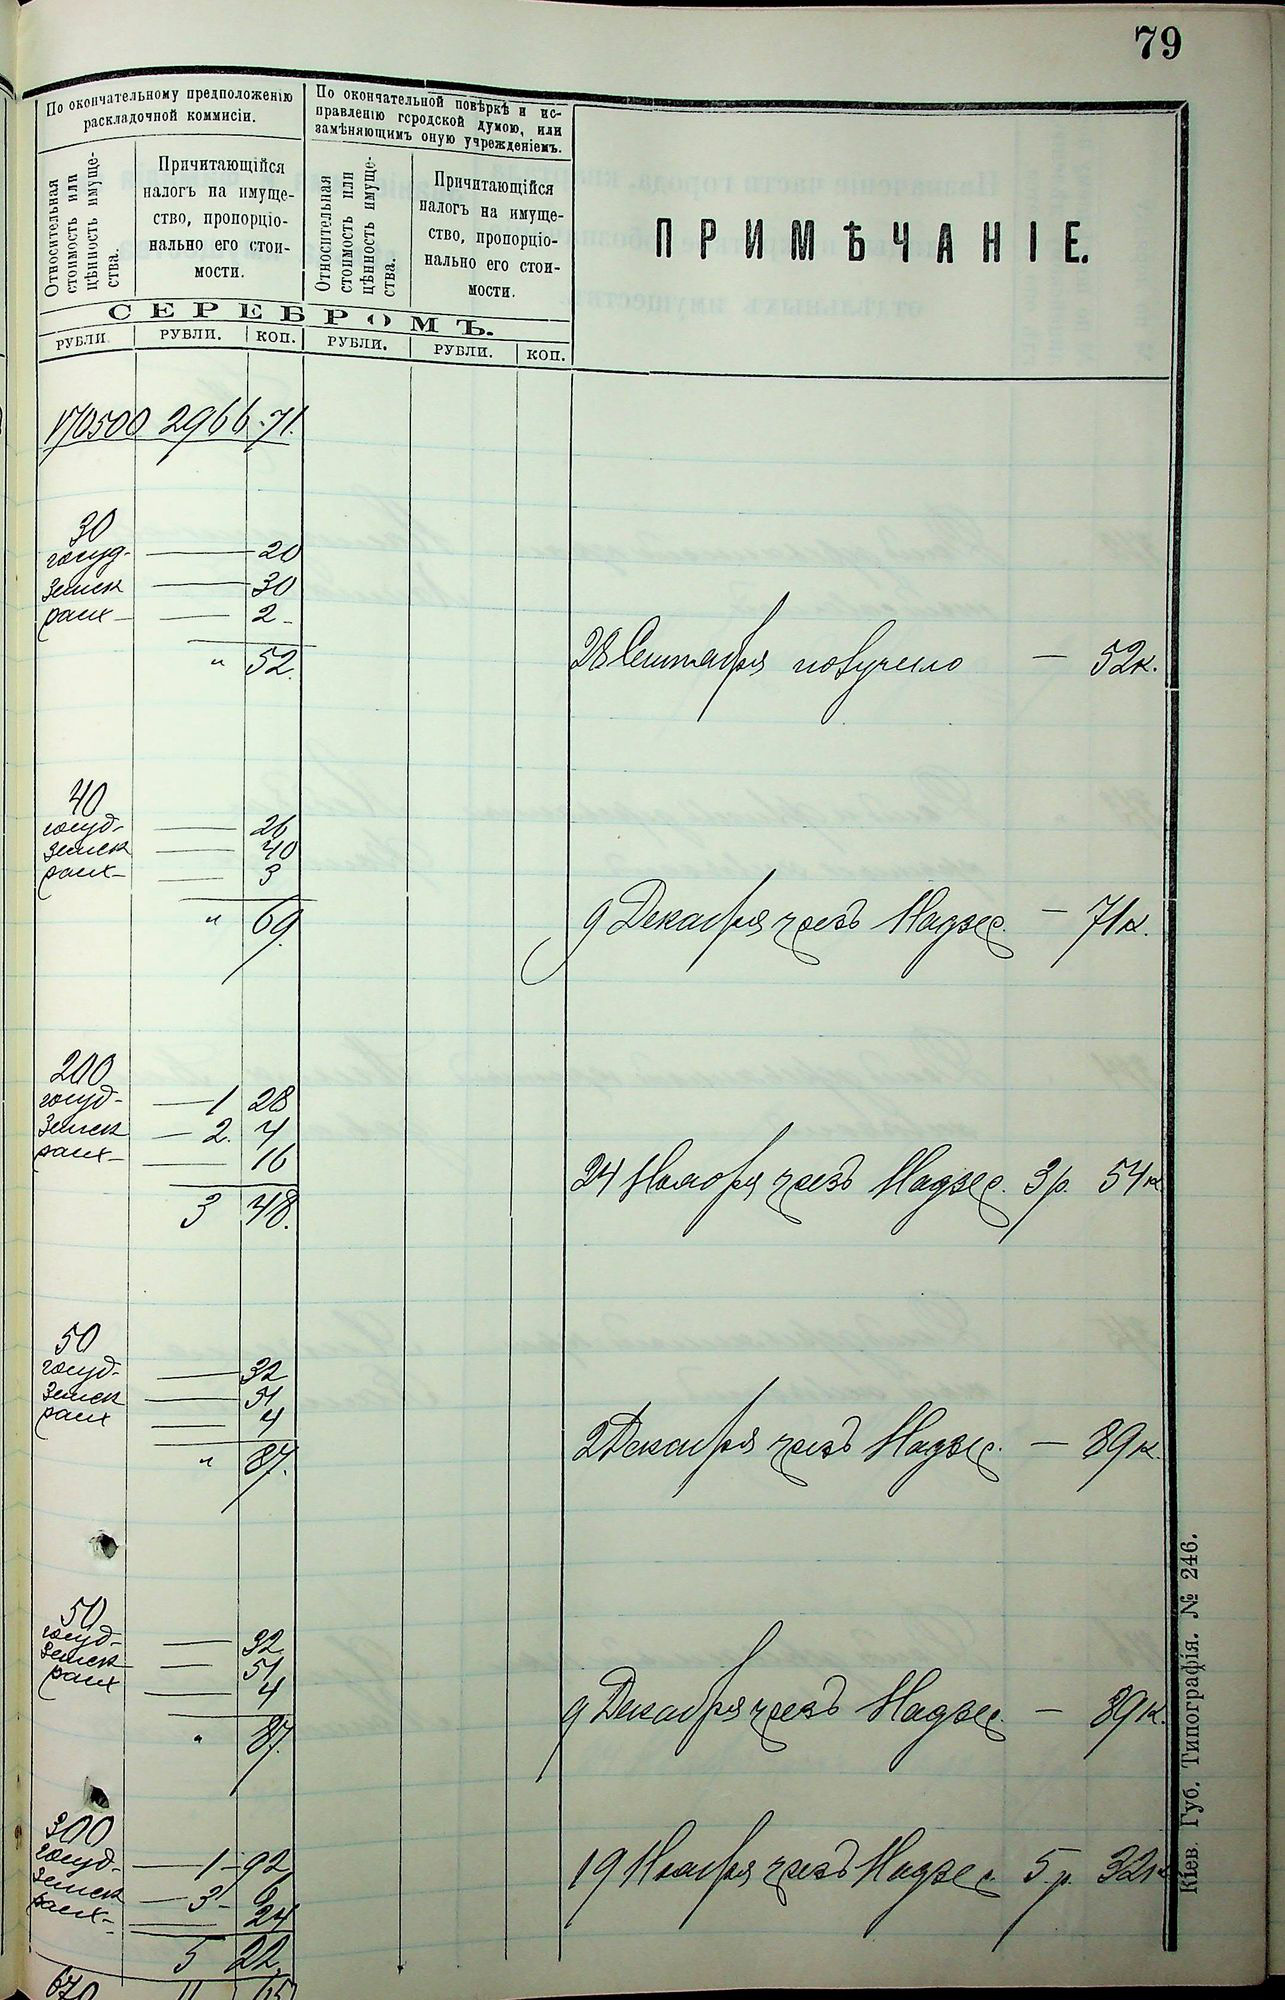 79
По окончательному предположенію
раскладочной коммисіи.
По окончательной повѣркѣ и ис-
правленію городской думою, или
замѣняющимъ оную учрежденіемъ.
Относительная
стоимость или
цѣнность имуще-
ства.
Причитающійся
налогъ на имуще-
ство, пропорціо-
нально его стои-
мости.
Относительная
стоимость или
цѣнность имуще-
ства.
Причитающійся
налогъ на имуще-
ство, пропорціо-
нально его стои-
мости.
ПРИМѢЧАНІЕ.
СЕРЕБРОМЪ.
РУБЛИ. РУБЛИ. КОП. РУБЛИ. РУБЛИ. КОП.
170500 2966.71.
30
госуд- — 20
земск — 30
расх- — 2-
" 52.
28 Сентября получено — 52к.
40
госуд- — 26
земск — 40
расх- — 3
" 69.
9 Декабря чрезъ Надзес. — 71к.
200
госуд- — 1 28
земск — 2. 4
расх- — 16
3 48.
24 Ноября чрезъ Надзес. 3р. 54к
50
госуд- — 32
земск — 51
расх — 4
" 87.
2 Декабря чрезъ Надзес. — 89к.
50
госуд- — 32
земск — 51
расх — 4
" 87.
9 Декабря чрезъ Надзес — 89к.
300
госуд- — 1-92
земск — 3- 6
расх- — 24
5 22.
19 Ноября чрезъ Надзес. 5.р. 32к
670 11 65
Кіев. Губ. Типографія. № 246.